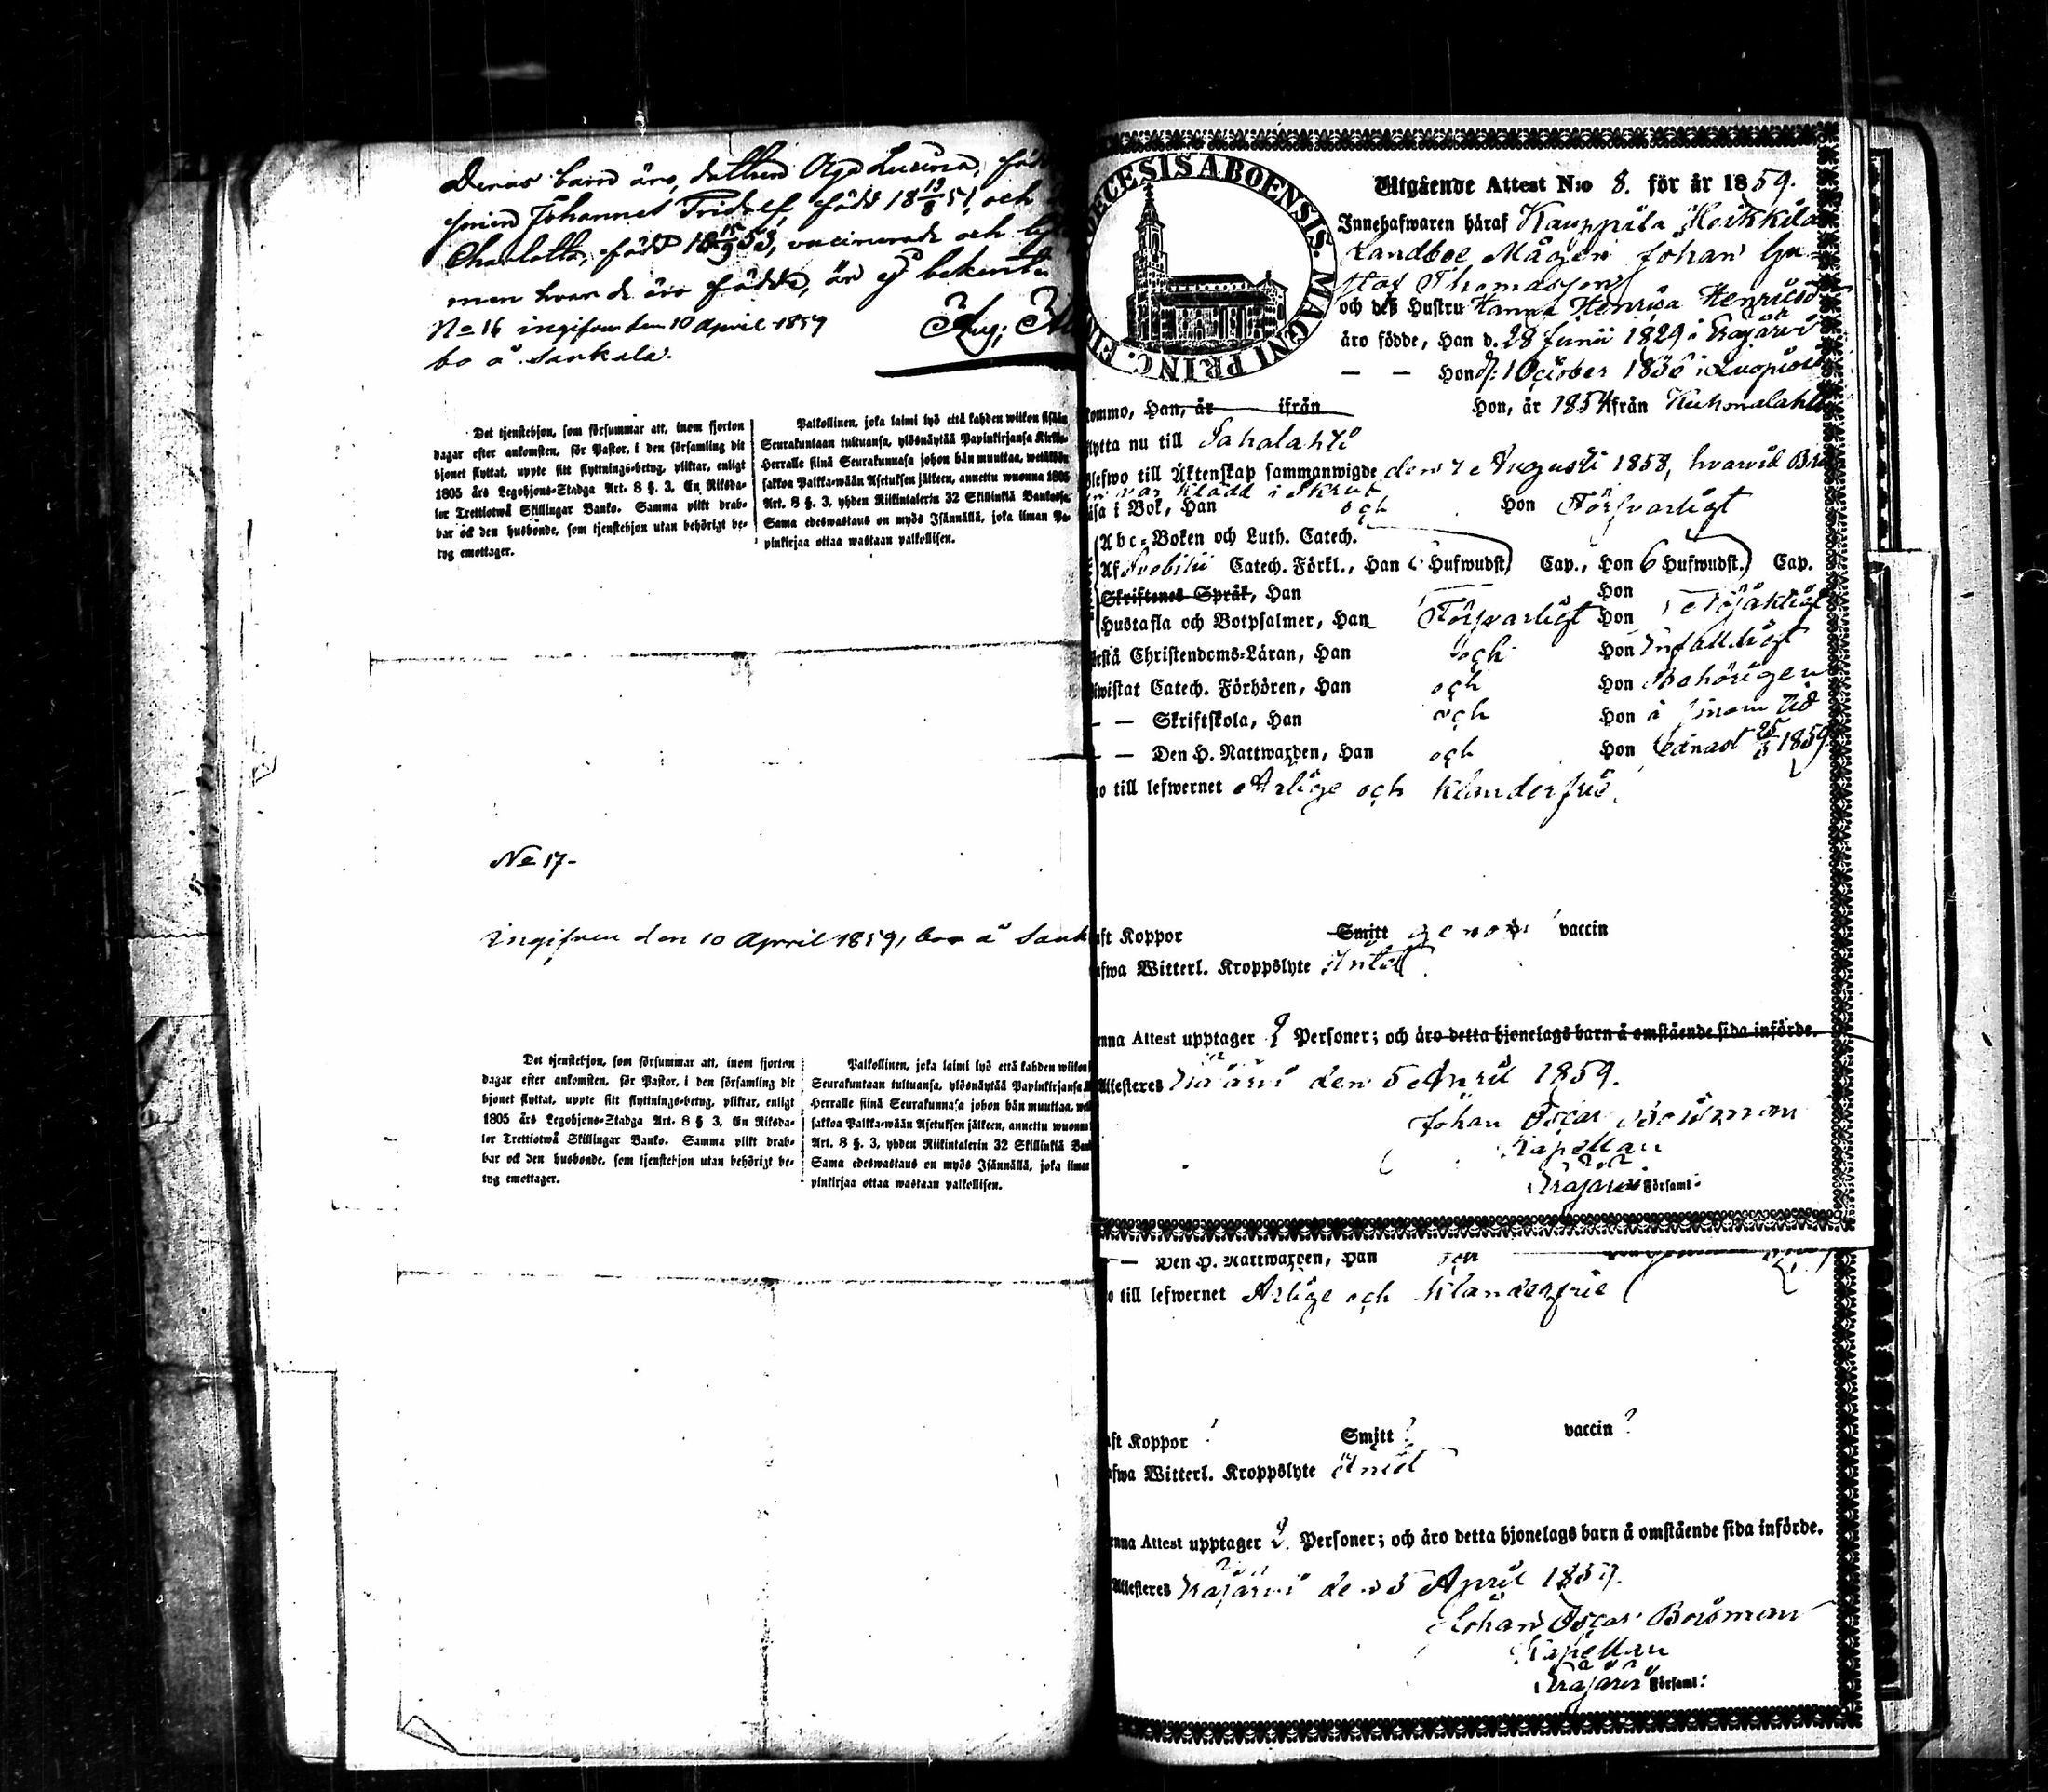 Deras barn äro, dottren Olga Lusina, född
sonen Johannes Fridolf, född 18 13/8 51, och
Charlotta, född 18 15/9 53, vaccinerade och
men hvar de äro födde, är ej bekant.
No 16 ingifven den 10 April 1859
bo å Sankala.
Aug:
Det tjenstehjon, som försummar att, inom fjorton
dagar efter ankomsten, för Pastor, i den församling dit
hjonet flyttat, uppte sitt flyttnings-betyg, pliktar, enligt
1805 års Legohjons-Stadga Art. 8 §. 3, En Riksda-
ler Trettiotwå Skillingar Banko. Samma plikt drab-
bar ock den husbonde, som tjenstehjon utan behörigt be-
tyg emottager.
Palkollinen, joka laimi lyö että kahden wiikon sisään
Seurakuntaan tultuansa, ylösnäytää Papinkirjansa Kirkko-
Herralle siinä Seurakunnasa johon hän muuttaa, wetäköön
sakkoa Palkka-wään Asetuksen jälkeen, annettu wuonna 1805
Art. 8 §. 3, yhden Riikintalerin 32 Skillinkiä Bankossa
Sama edeswastaus on myös Isännällä, joka ilman Pa-
pinkirjaa ottaa wastaan palkollisen.
No 17.
ingifven den 10 April 1859, bor å Sank
Det tjenstehjon, som försummar att, inom fjorton
dagar efter ankomsten, för Pastor, i den församling dit
hjonet flyttat, uppte sitt flyttnings-betyg, pliktar, enligt
1805 års Legohjons-Stadga Art. 8 § 3, En Riksda-
ler Trettiotwå Skillingar Banko. Samma plikt drab-
bar ock den husbonde, som tjenstehjon utan behörigt be-
tyg emottager.
Palkollinen, joka laimi lyö että kahden wiikon
Seurakuntaan tultuansa, ylösnäytää Papinkirjansa
Herralle siinä Seurakunnasa johon hän muuttaa,
sakkoa Palkka-wään Asetuksen jälkeen, annettu wuonna
Art. 8 §. 3, yhden Riikintalerin 32 Skillinkiä
Sama edeswastaus on myös Isännällä, joka ilman
pinkirjaa ottaa wastaan palkollisen.
ECESIS ABOENSIS. MAGNI PRINC. FIN
Utgående Attest N:o 8. för år 1859.
Innehafwaren häraf Kauppila Heikkilä
Landboe Mågen Johan Gu-
staf Thomasson
och deß Hustru Hanna Henrica Henricsd
äro födde, Han d. 28 Junii 1829 i Kräjärvi
— — Hon d. 1 October 1836 i Luopiois
kommo, Han, är ifrån Hon, år 1854 ifrån Kuhmalahti
flytta nu till Sahalahti
blefwo till Äktenskap sammanwigde den 7 Augusti 1858, hvarvid Bru
var klädd i skrud
läsa i Bok, Han och Hon Försvarligt
Abc-Boken och Luth. Catech.
Af Svebilii Catech. Förkl., Han 6 Hufwudst. Cap., Hon 6 Hufwudst. Cap.
Skriftenes Språk, Han Hon
Hustafla och Botpsalmer, Han Försvarligt Hon Nöjaktigt
förstå Christendoms-Läran, Han och Hon Enfalldigt
biwistat Catech. Förhören, Han och Hon Behörigen
— — Skriftskola, Han och Hon å sinom tid
— — Den H. Nattwarden, Han och Hon sednast 25/3 1859
äro till lefwernet Ärlige och klanderfrie.
haft Koppor Smitt genom vaccin
hafwa Witterl. Kroppslyte Intet
enna Attest upptager 2 Personer; och äro detta hjonelags barn å omstående sida införde.
Attesteres Kräjärvi den 5 April 1859.
Johan Oscar Boisman
Kapellan
Kräjärvi Församl:
— Den H. Nattwarden, Han och
o till lefwernet Ärlige och klanderfrie
aft Koppor ? Smitt ? vaccin ?
afwa Witterl. Kroppslyte
enna Attest upptager 2. Personer; och äro detta hjonelags barn å omstående sida införde.
Attesteres Kräjärvi den 5 April 1859.
Johan Oscar Boisman
Kapellan
Kräjärvi Församl: